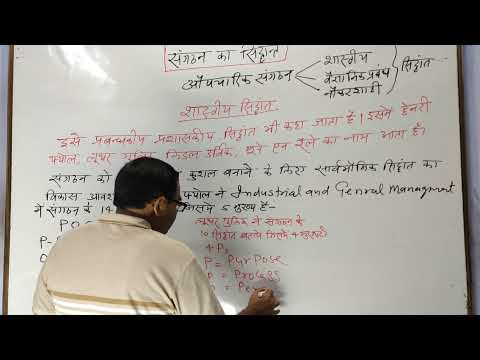 संगठन का सिद्धान्त
औपचारिक संगठन
शास्त्रीय
वैज्ञानिक प्रबंध
नौकरशाही
सिद्धांत
शास्त्रीय सिद्धांत
इसे प्रबन्धकीय प्रशासकीय सिद्धांत भी कहा जाता है। इसमें हेनरी
फेयोल, लूथर गुलिक, लिंडल उर्विक, एलन का नाम आता है।
संगठन को कुशल बनाने के लिए सार्वभौमिक सिद्धांत का
विकास आवश फेयोल ने Industrial and Genral Managment
में संगठन के 14 जिसमें 5 मुख्य है-
लूथर गुलिक ने संगठन के
10 सिद्धांत बताये जिसमें 4 मुख्य है।
4 Ps
P = Purpose
P = Process
= Per
PO
P-